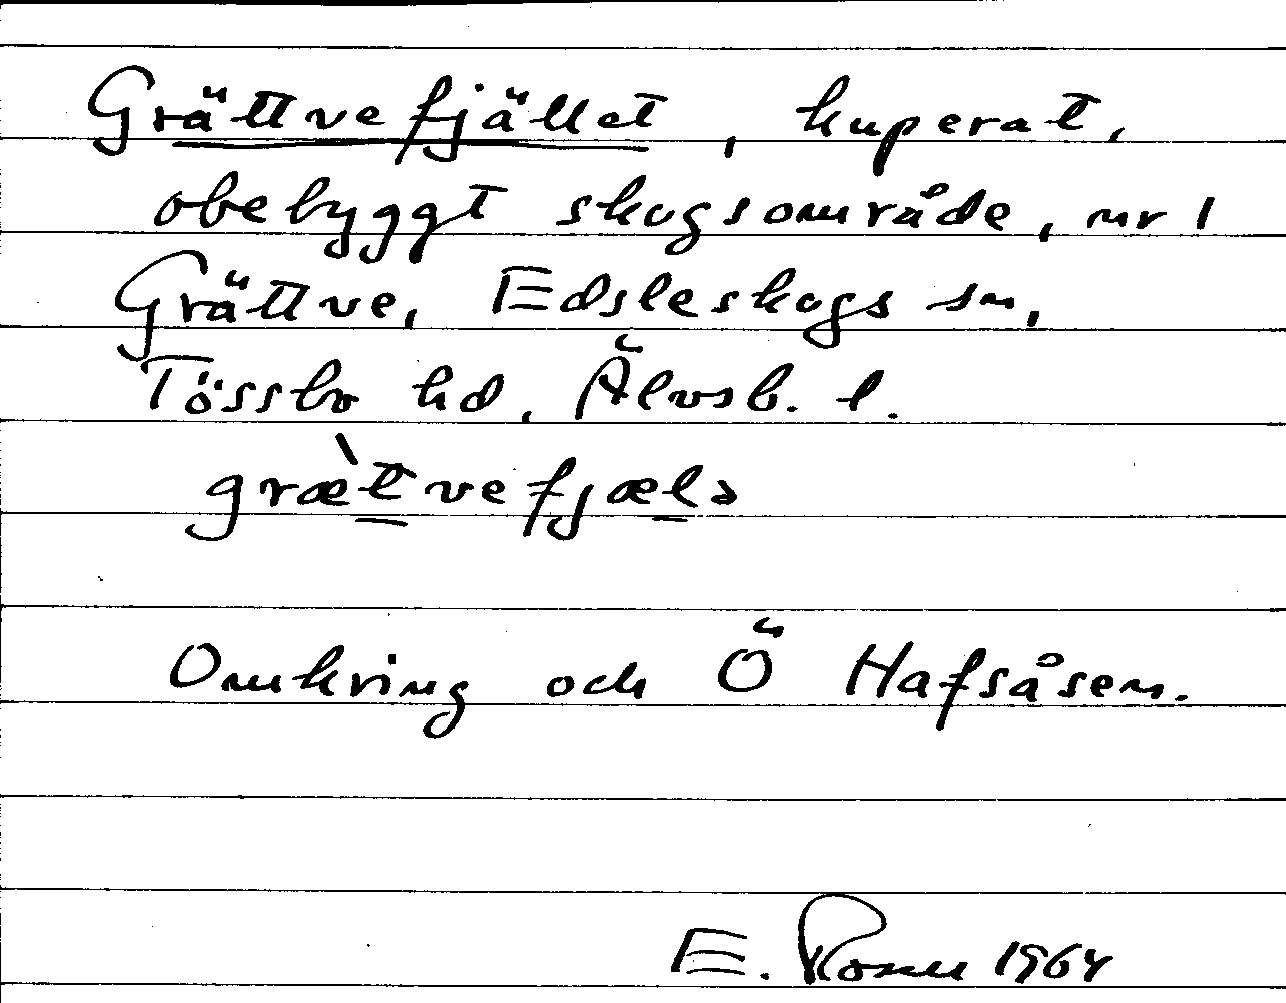 Grättvefjället, kuperat,
obebyggt skogsområde, nr 1
Grättve, Edsleskogs sn,
Tössbo hd, Älvsb. l.
græ̀tvefjælə
Omkring och Ö Hafsåsen.
E. 1964